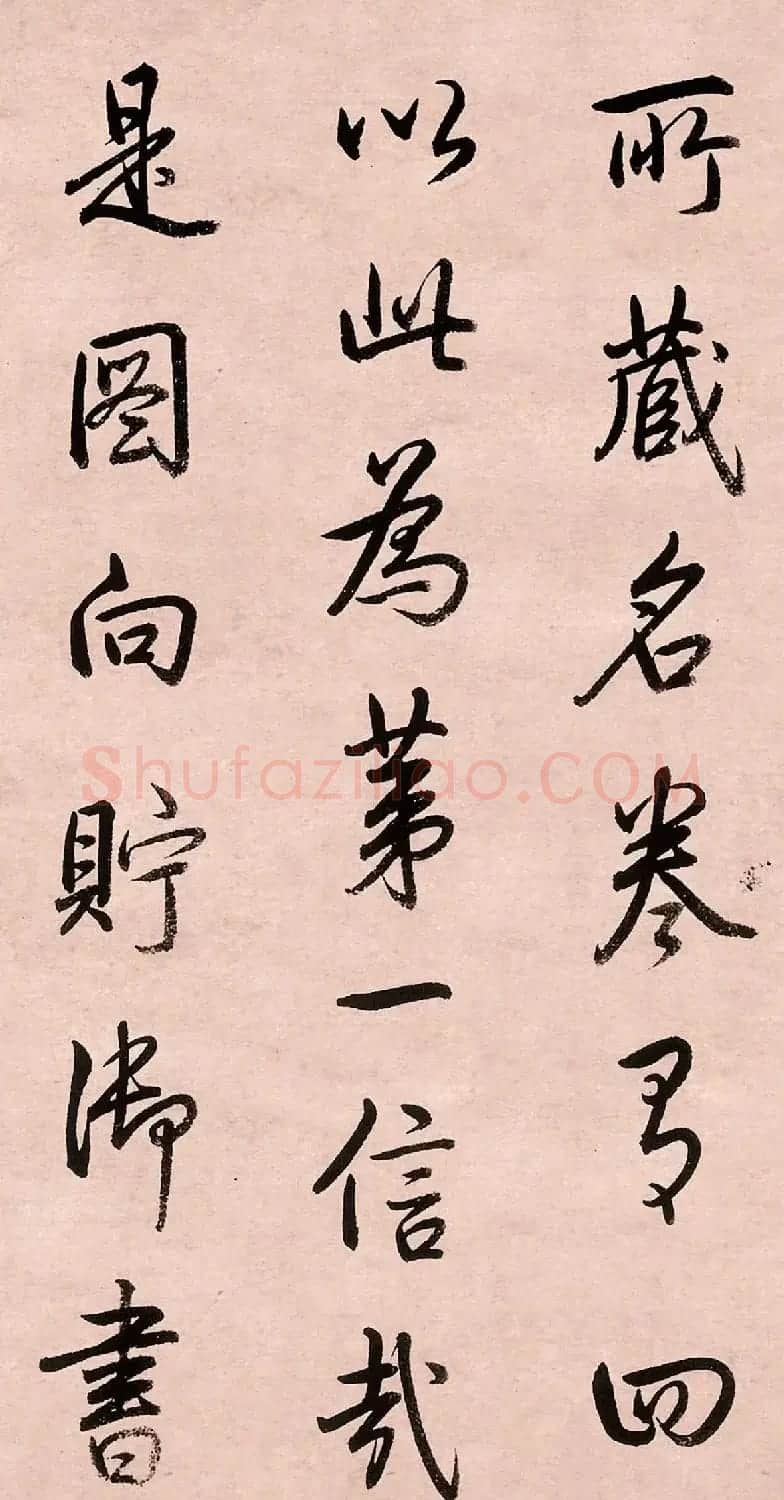 所藏名卷有四
以此為第一信哉
是圖向貯御書
Shufaziliao.COM